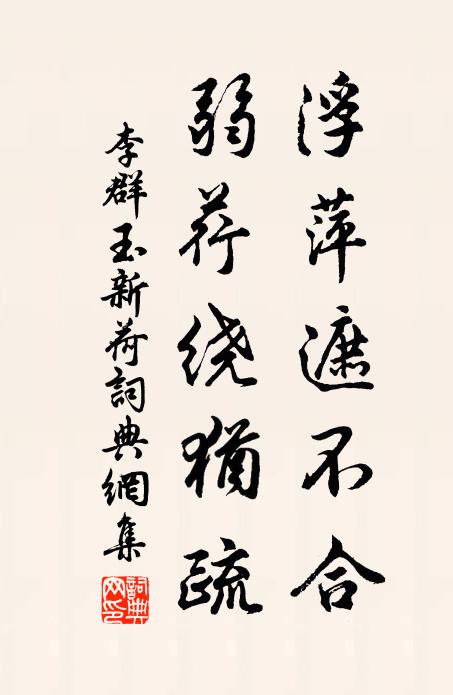 浮萍遮不合
弱荇绕猶疏
李群玉新荷詞典網集
詞典网印